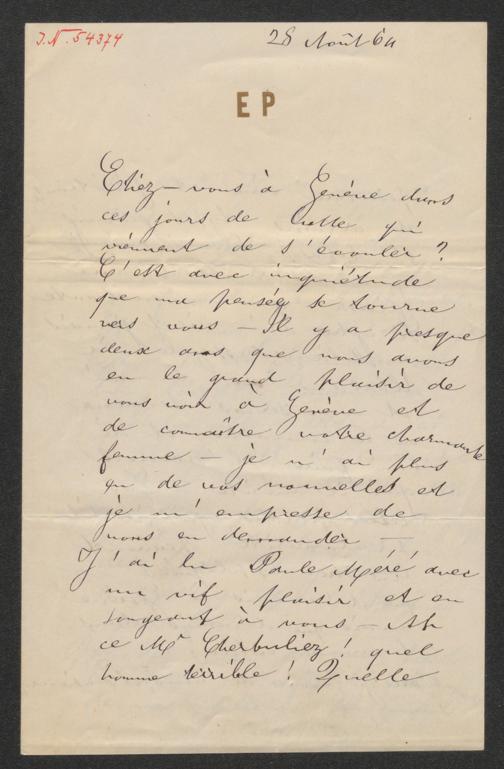 J.N. 54374
28 Août 64
E P
Etiez-vous à Genève dans
ces jours de lutte qui
viennent de s'écouler ?
C'est avec inquiétude
que ma pensée se tourne
vers vous - Il y a presque
deux ans que nous avons
eu le grand plaisir de
vous voir à Genève et
de connaître votre charmante
femme - je n'ai plus
eu de vos nouvelles et
je m'empresse de
vous en demander -
J'ai lu Paule Méré avec
un vif plaisir et en
songeant à vous - Ah
ce Mr Cherbuliez ! quel
homme terrible ! Quelle